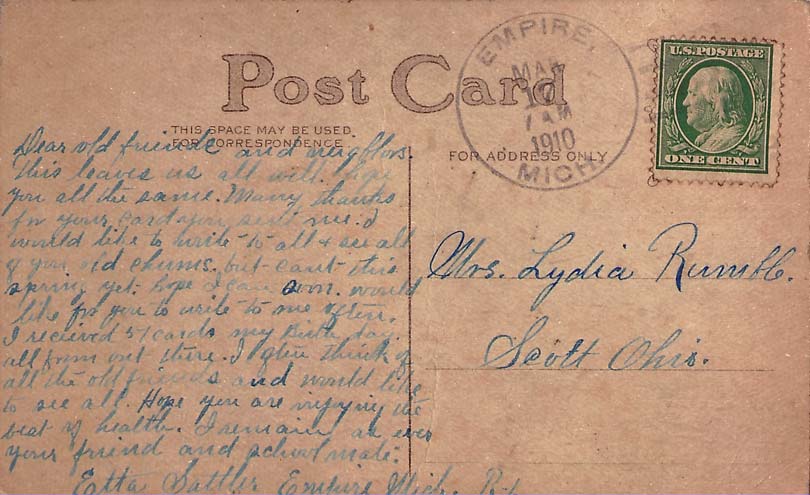 Post Card
THIS SPACE MAY BE USED
FOR CORRESPONDENCE
FOR ADDRESS ONLY
EMPIRE,
MAR
17
7 AM
1910
MICH.
U.S. POSTAGE
ONE CENT
Dear old friends and neighbors.
This leaves us all well. hope
you all the same. Many thanks
for your card you sent me. I
would like to write to all & see all
of you old chums. but can't this
spring yet. hope I can soon. would
like for you to write to me often.
I recieved 51 cards my Birth day.
all from out there. I often think of
all the old friends and would like
to see all. Hope you are injoying the
best of health. I remain as ever
your friend and schoolmate.
Etta Sattler Empire Mich.
Mrs. Lydia Rumble.
Scott Ohio.